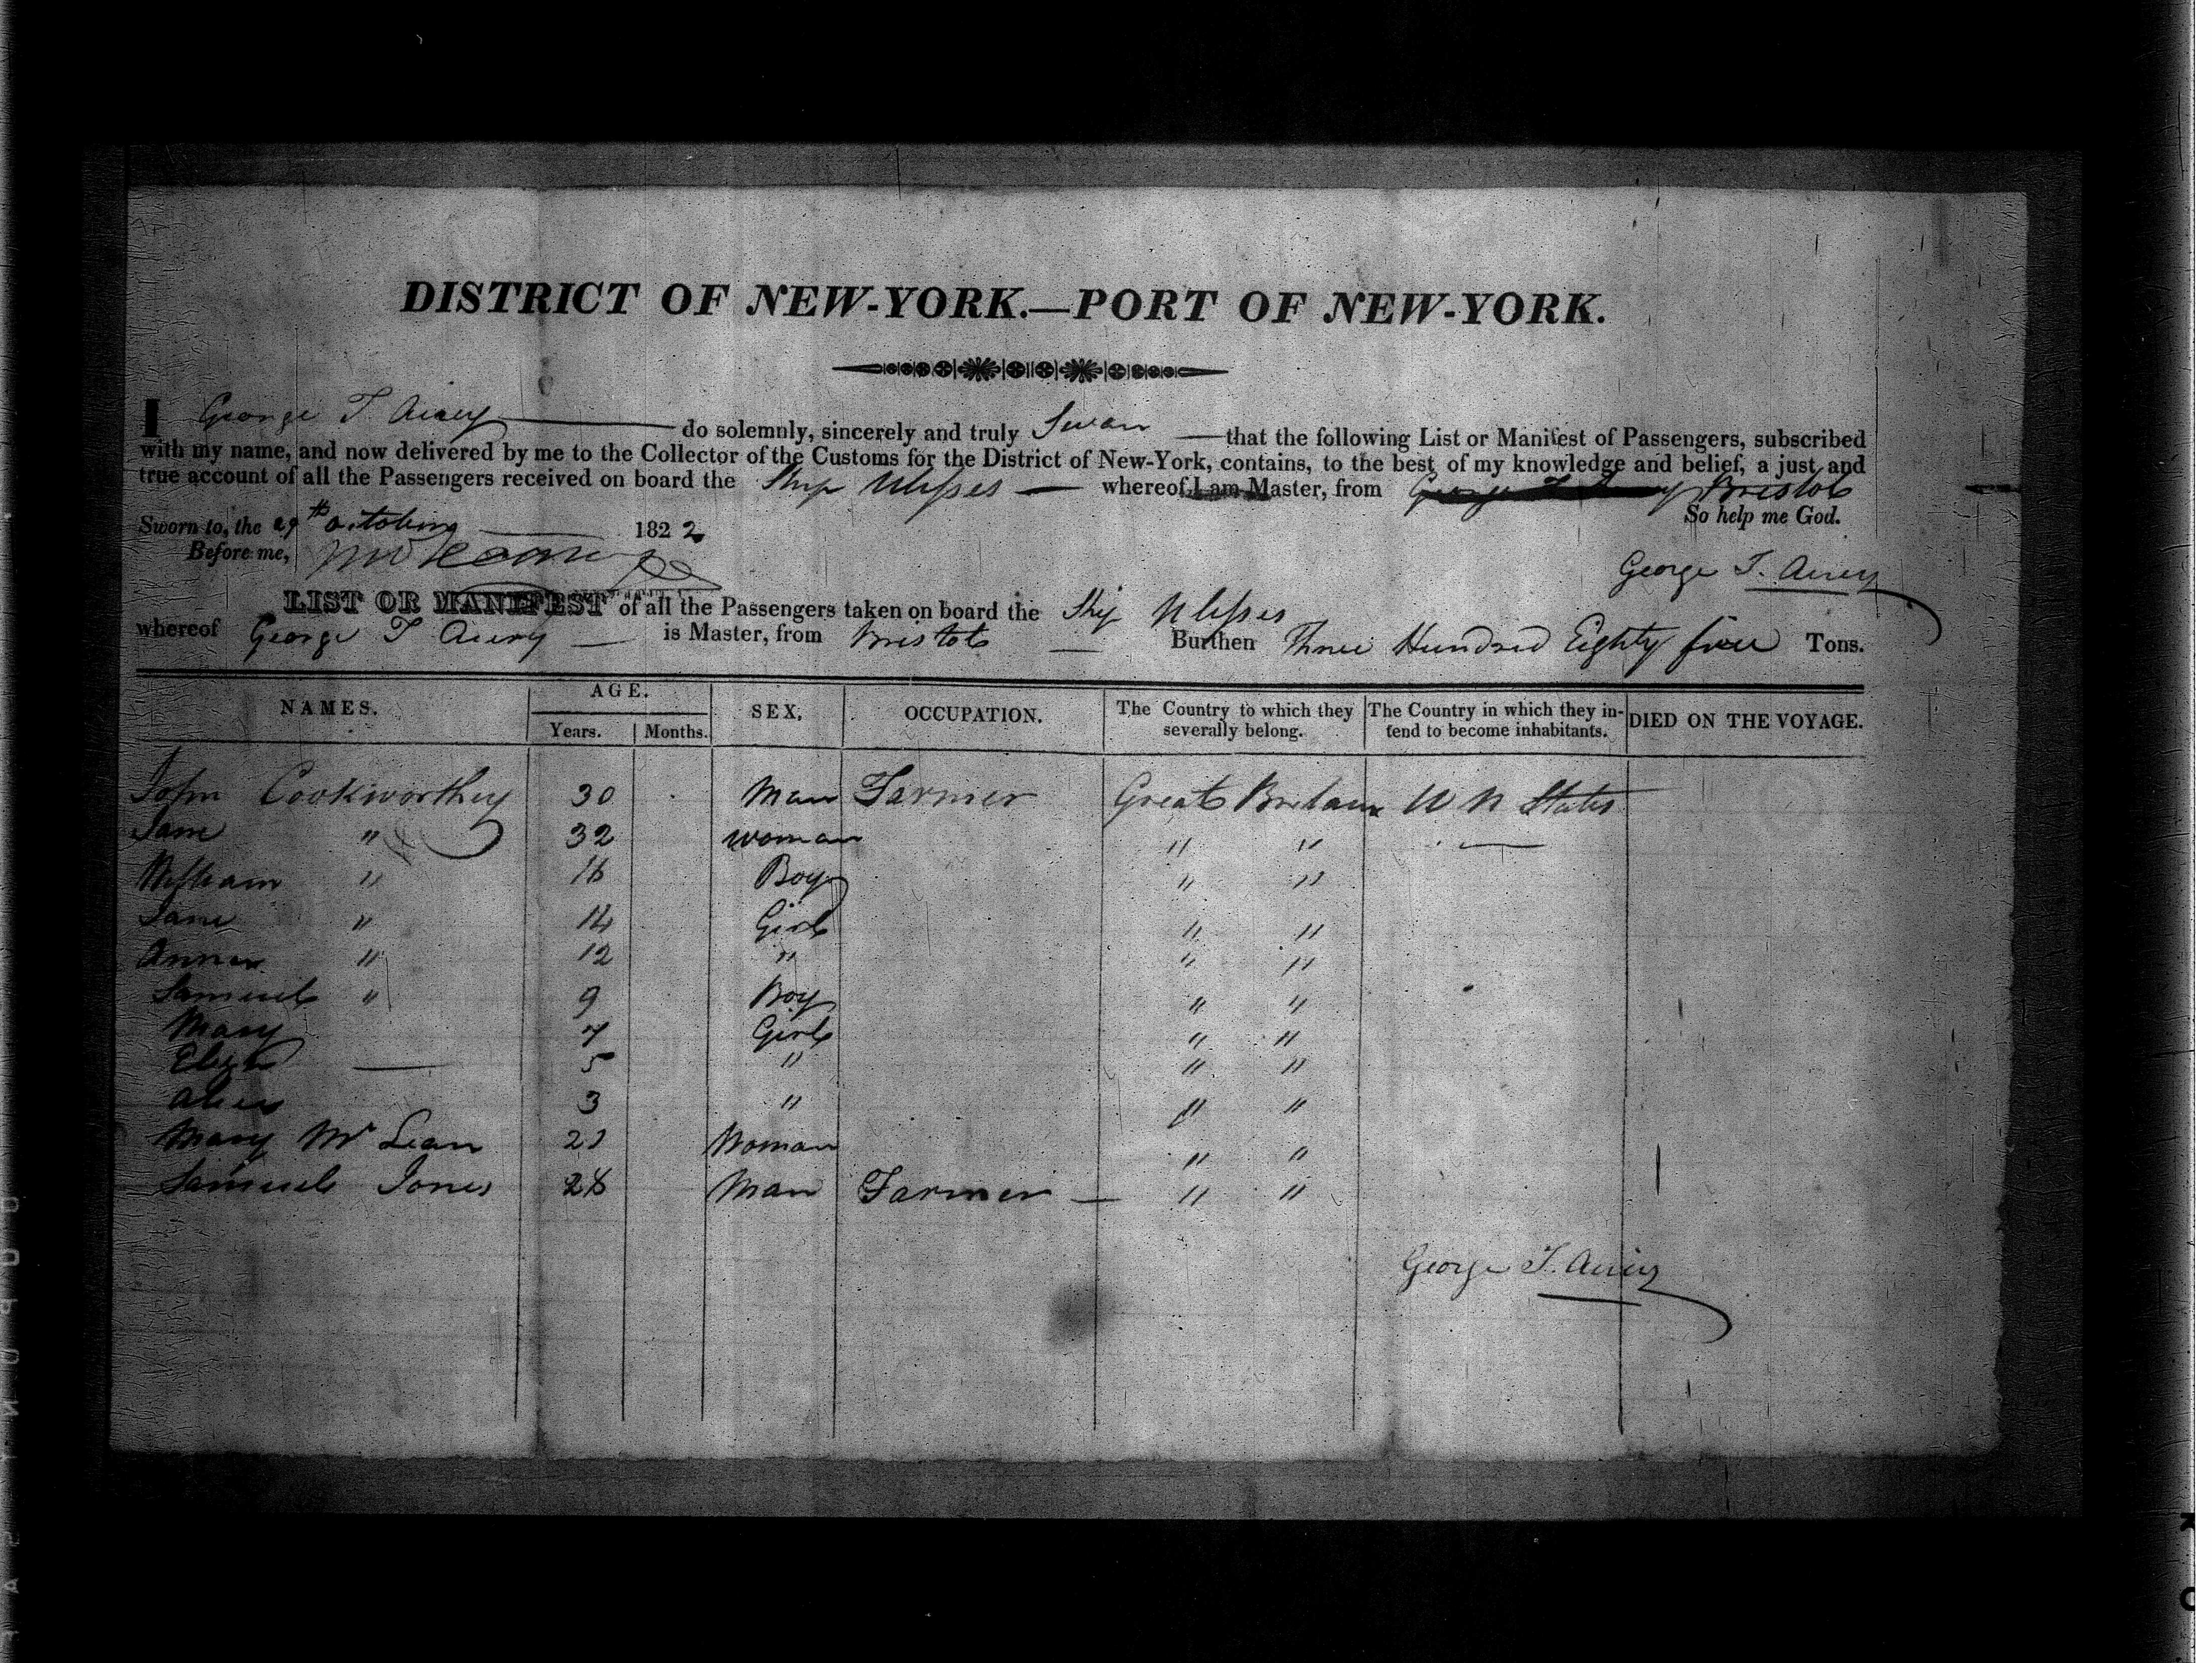 DISTRICT OF NEW-YORK.—PORT OF NEW-YORK.
I George T. Avery do solemnly, sincerely and truly Swear —that the following List or Manifest of Passengers, subscribed
with my name, and now delivered by me to the Collector of the Customs for the District of New-York, contains, to the best of my knowledge and belief, a just and
true account of all the Passengers received on board the Ship Ulysses — whereof I am Master, from Bristol
So help me God.
Sworn to, the 29th 1822
Before me,
George T. Avery
LIST OR MANIFEST of all the Passengers taken on board the Ship Ulysses
whereof George T Avery — is Master, from Bristol — Burthen Three Hundred Eighty five Tons.
NAMES. AGE. SEX. OCCUPATION. The Country to which they severally belong. The Country in which they intend to become inhabitants. DIED ON THE VOYAGE.
Years. Months.
John Cookworthy 30 Man Farmer Great Britain U N States
Jane " 32 Woman " "
William " Boy " "
Jane " 14 Girl " "
" 12 " " "
Samuel " 9 Boy " "
Mary 7 Girl " "
Eliza — 5 " " "
3 " " "
Mary Mc Lean 21 Woman " "
Samuel Jones 28 Man Farmer — " "
George T. Avery